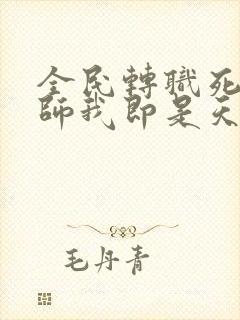 全民轉職死
師我即是天
毛丹青